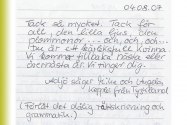 04.08.07
Tack så mycket. Tack för
all, den lilla ljus, den
plommonor... och, och, och...
Du är ett kärleksfull kvinna
Vi kommer tillbaka nästa eller
övernästa år. Vi ringer dig.
Heike och Angela
från Tyskland
(Förlåt det dålig rättskrivning och
grammatik.)